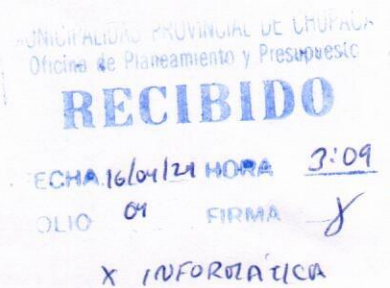 MUNICIPALIDAD PROVINCIAL DE CHUPACA
Oficina de Planeamiento y Presupuesto
RECIBIDO
FECHA 16/04/21 HORA 3:09
OLIO 01 FIRMA
X INFORMÁTICA